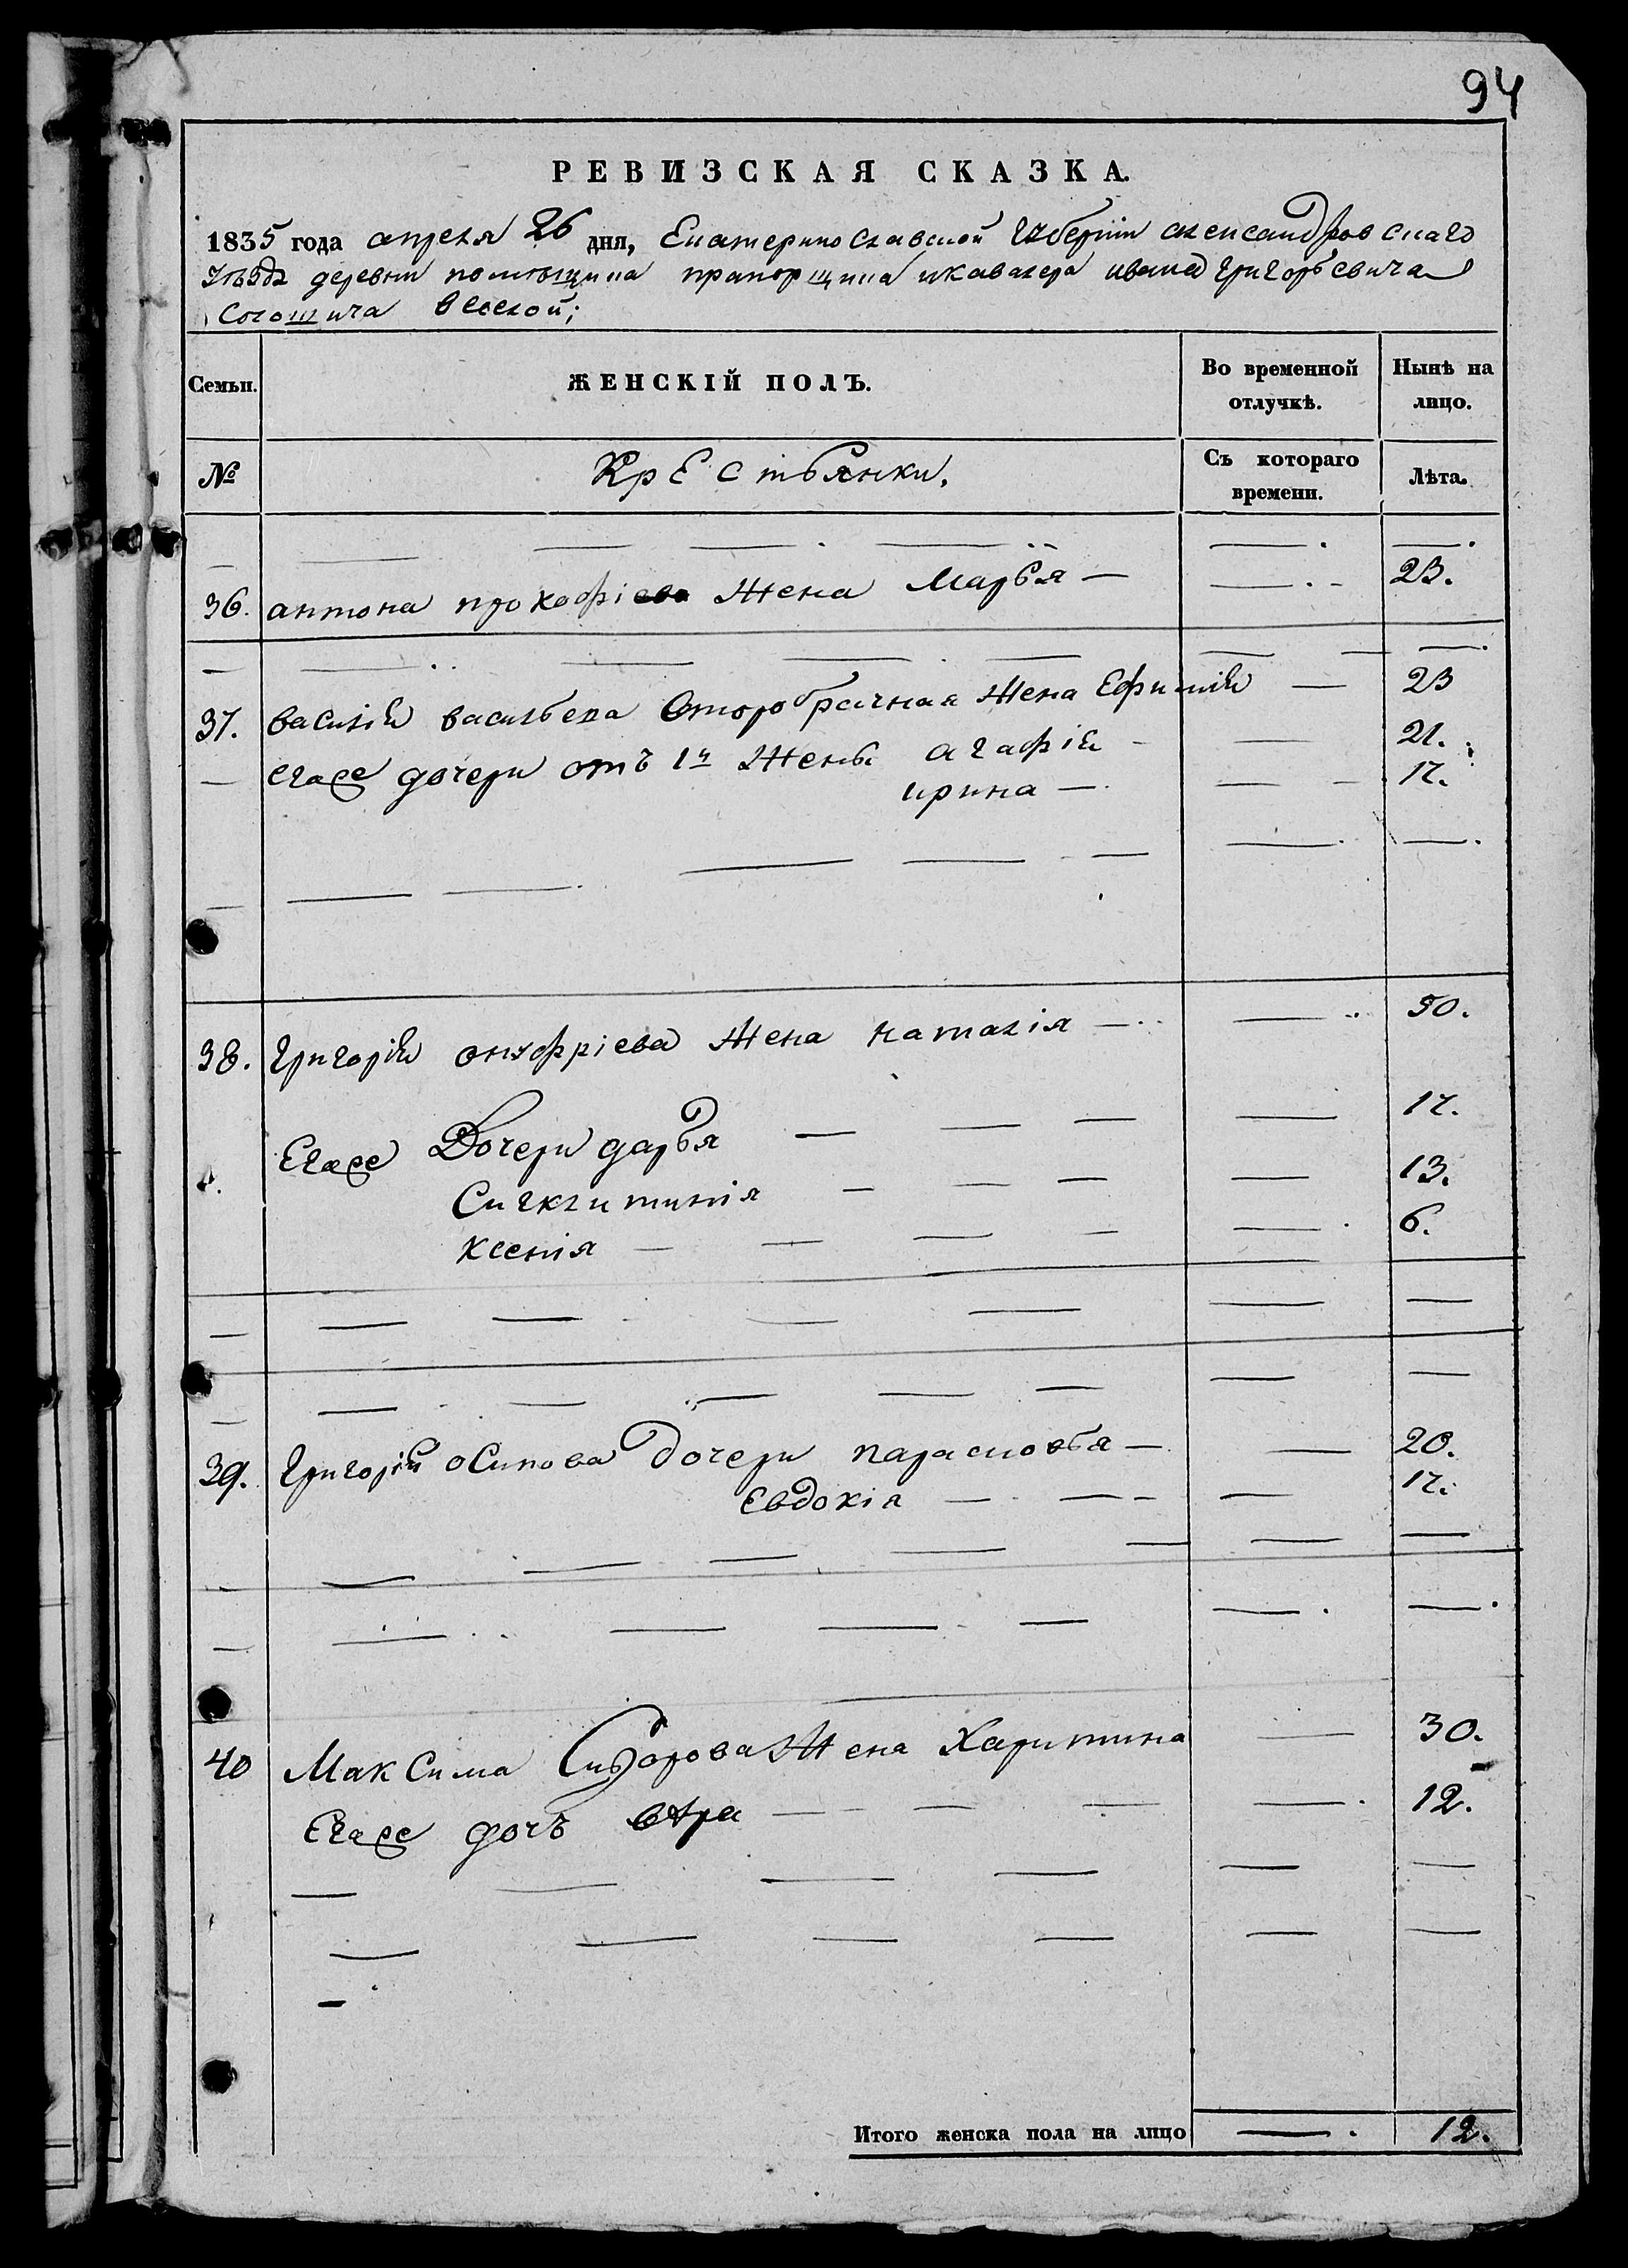 94
РЕВИЗСКАЯ СКАЗКА.
1835 года апреля 26 дня, Екатеринославской губернии александровскаго
уѣзда деревни помѣщика прапорщика икавалера ивана григорьевича
веселой;
Семьи. ЖЕНСКІЙ ПОЛЪ. Во временной отлучкѣ. Нынѣ на лицо.
№ Крестьянки. Съ котораго времени. Лѣта.
36. антона прокофіева Жена Марья — 23.
37. василія васильева второбрачная Жена Ефимія — 23
— Егоже дочери отъ 1й Жены агафія — 21.
ирина — 17.
38. григорія онуфріева Жена наталія — 50.
Егоже Дочери дарья — 17.
Сигклитикія — 13.
Ксенія — 6.
39. григорія осипова дочери парасковья — 20.
Евдокія — 17.
40 Максима Сидорова Жена Харитина 30.
Егоже дочь вѣра — 12.
Итого женска пола на лицо — 12.